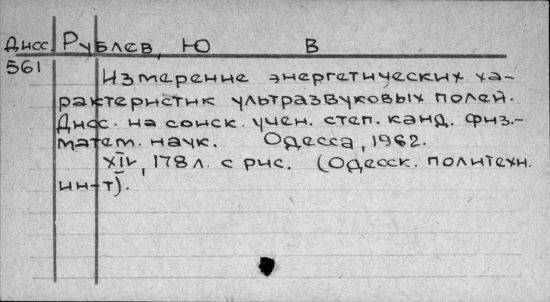 Дисс. Рублев, Ю В
561
Измерение энергетических ха-
рактеристик ультразвуковых полей.
Дисс. на соиск. учен. степ. канд. физ.-
матем. наук. Одесса, 1962.
XIV, 178 л. с рис. (Одесск. политехн.
ин-т).